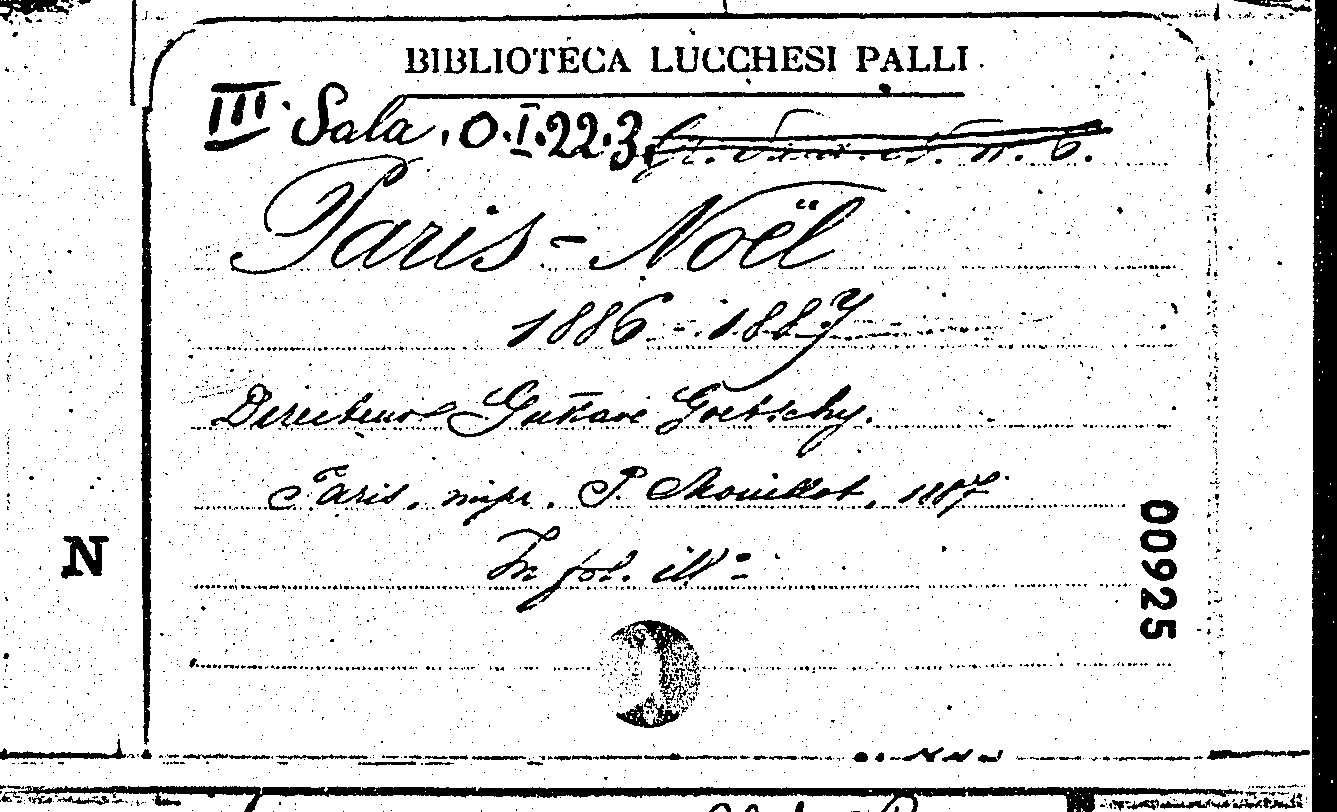 BIBLIOTECA LUCCHESI PALLI
III Sala. O.I.22.3.
Paris-Noël
1886-1887
Directeur Gustave Goetschy.
Paris, impr. P. Mouillot, 1887
In fol. illº
N
00925